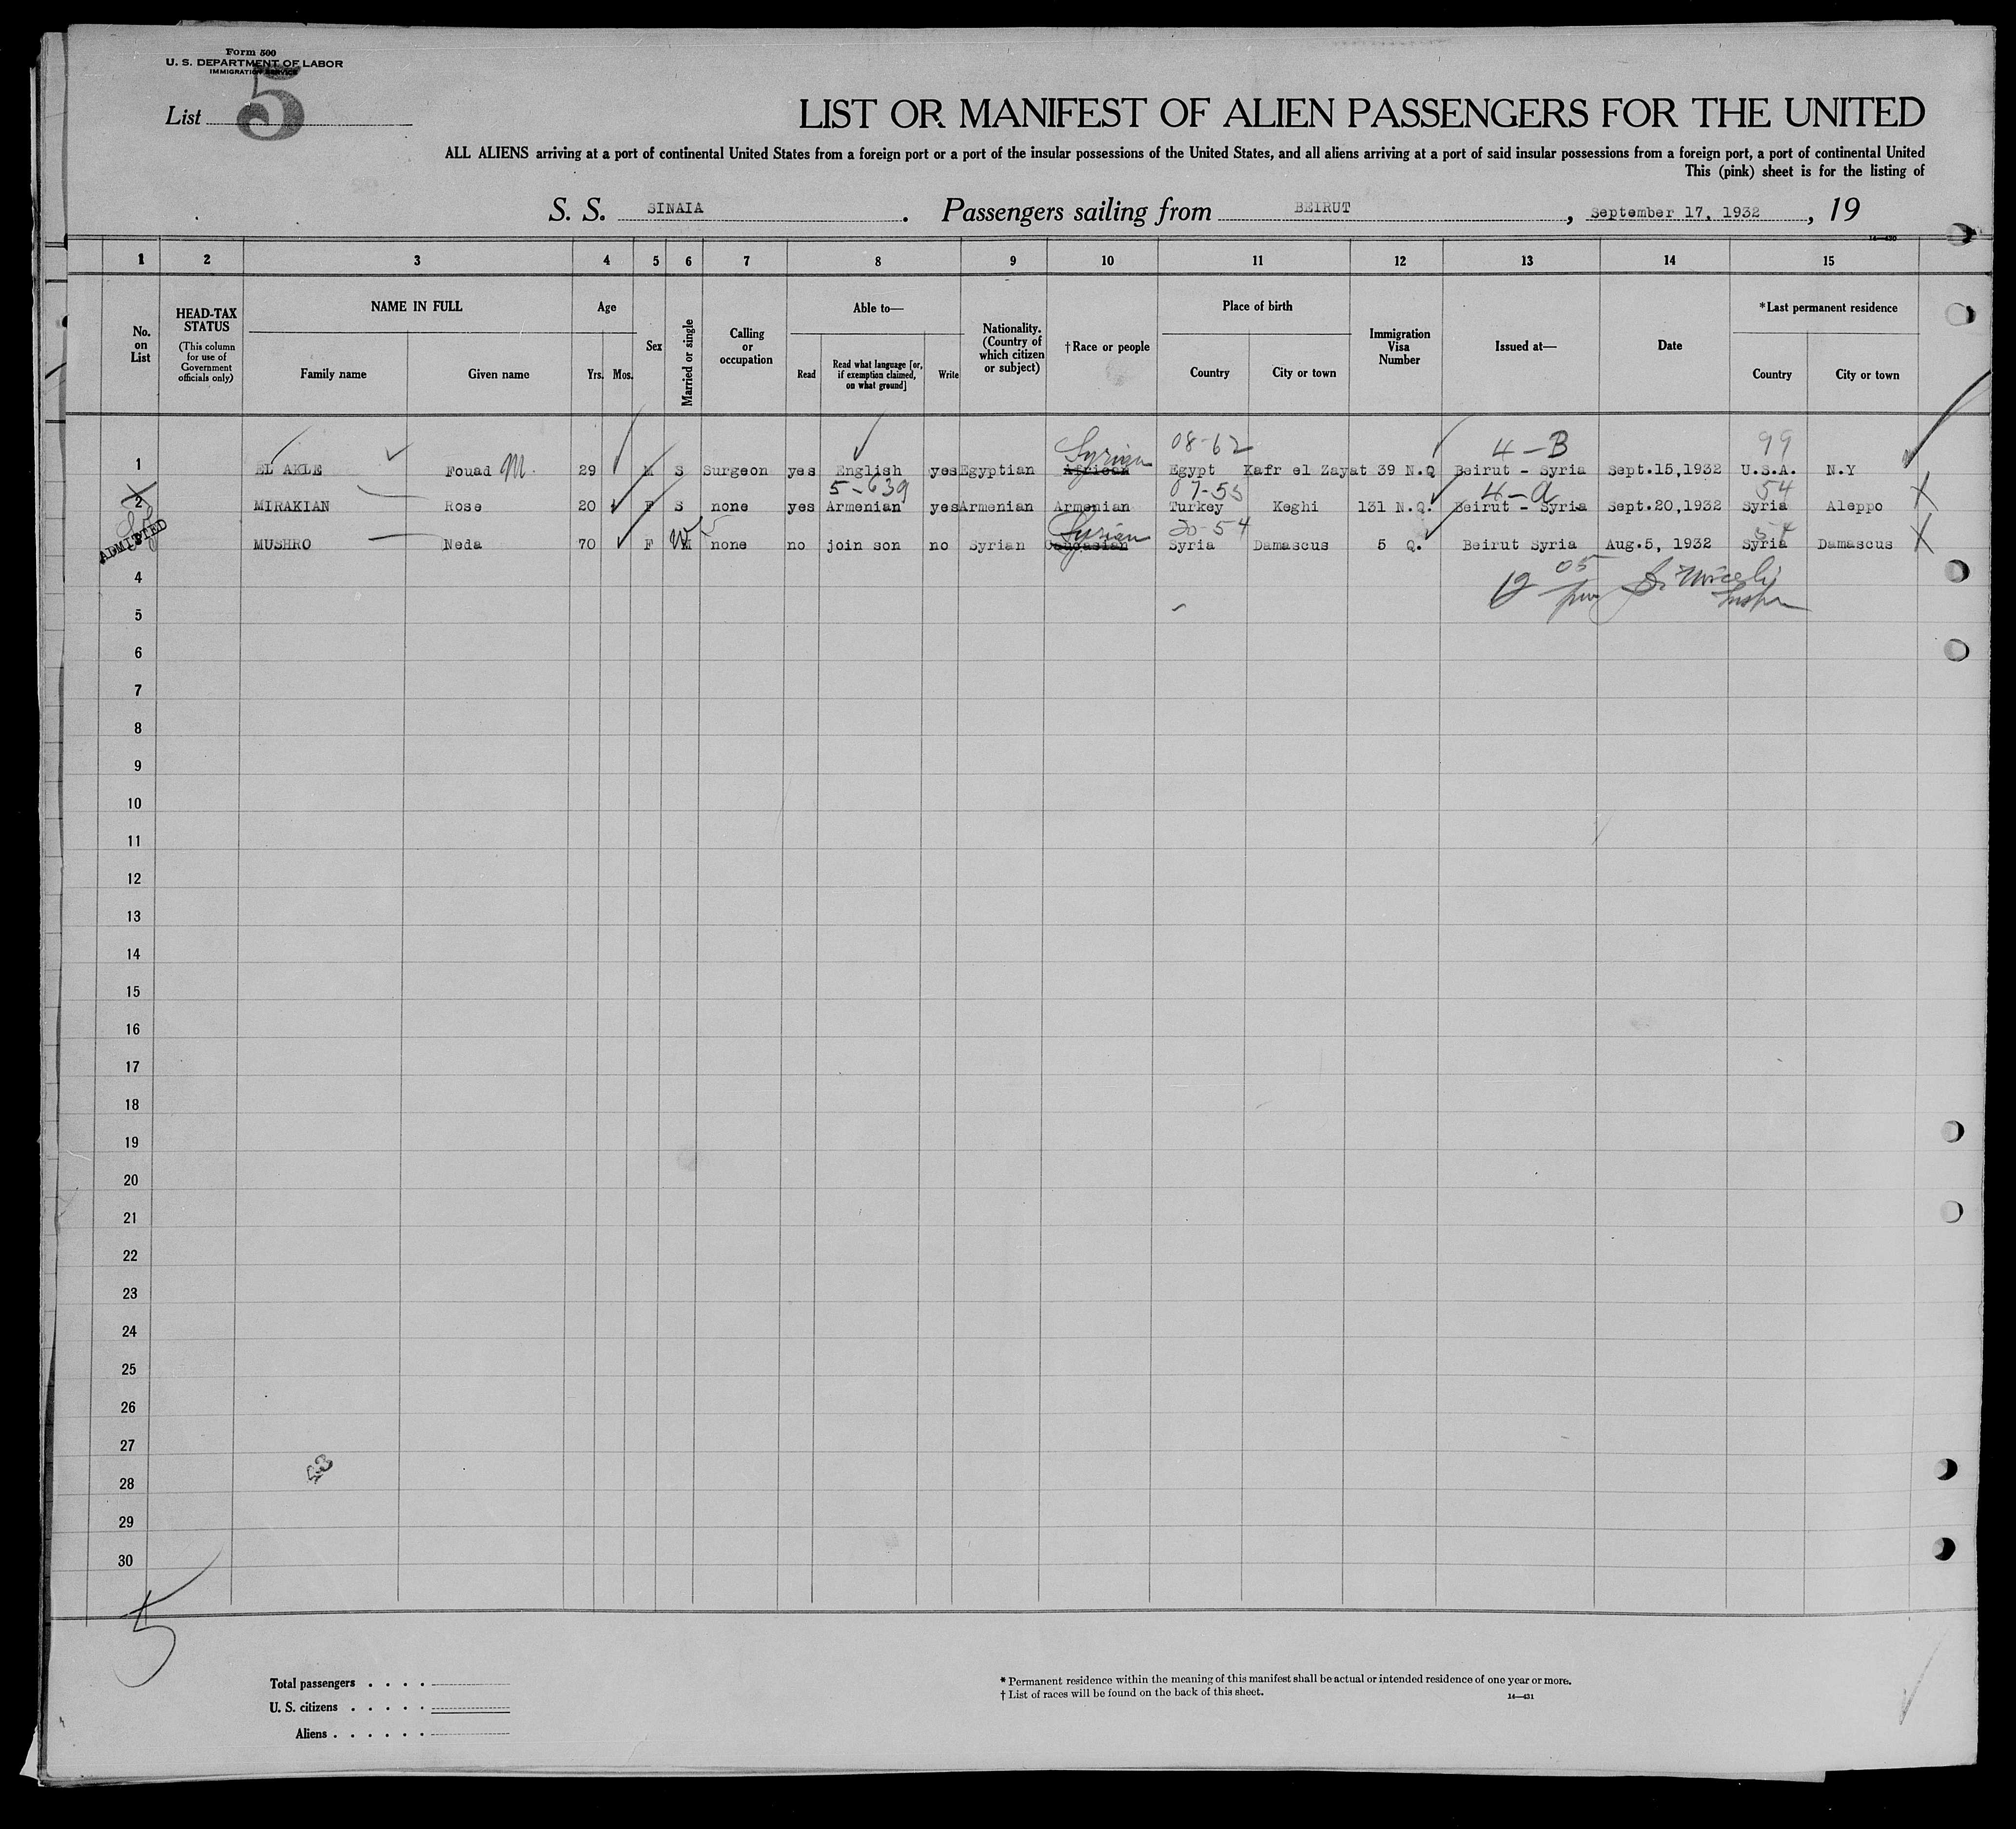 Form 500
U. S. DEPARTMENT OF LABOR
IMMIGRATION SERVICE
List 5
LIST OR MANIFEST OF ALIEN PASSENGERS FOR THE UNITED
ALL ALIENS arriving at a port of continental United States from a foreign port or a port of the insular possessions of the United States, and all aliens arriving at a port of said insular possessions from a foreign port, a port of continental United
This (pink) sheet is for the listing of
S. S. SINAIA. Passengers sailing from BEIRUT, September 17, 1932, 19
14—430
1 2 3 4 5 6 7 8 9 10 11 12 13 14 15
No. on List
HEAD-TAX STATUS (This column for use of Government officials only)
NAME IN FULL
Family name Given name
Age
Yrs. Mos.
Sex
Married or single
Calling or occupation
Able to—
Read
Read what language [or, if exemption claimed, on what ground]
Write
Nationality. (Country of which citizen or subject)
†Race or people
Place of birth
Country City or town
Immigration Visa Number
Issued at—
Date
*Last permanent residence
Country City or town
Syrian 08-62 4-B 99
1 EL AKLE Fouad M. 29 M S Surgeon yes English yes Egyptian African Egypt Kafr el Zayat 39 N.Q Beirut - Syria Sept.15,1932 U.S.A. N.Y
5-639 07-55 4-a 54
2 MIRAKIAN Rose 20 F S none yes Armenian yes Armenian Armenian Turkey Keghi 131 N.Q. Beirut - Syria Sept.20,1932 Syria Aleppo
ADMITTED
W 5 Syrian 20-54 54
3 MUSHRO Neda 70 F M none no join son no Syrian Caucasian Syria Damascus 5 Q. Beirut Syria Aug.5, 1932 Syria Damascus
4
12 05
5
6
7
8
9
10
11
12
13
14
15
16
17
18
19
20
21
22
23
24
25
26
27
43
28
29
30
5
Total passengers . . . .
U. S. citizens . . . . .
Aliens . . . . . .
* Permanent residence within the meaning of this manifest shall be actual or intended residence of one year or more.
† List of races will be found on the back of this sheet.
14—431